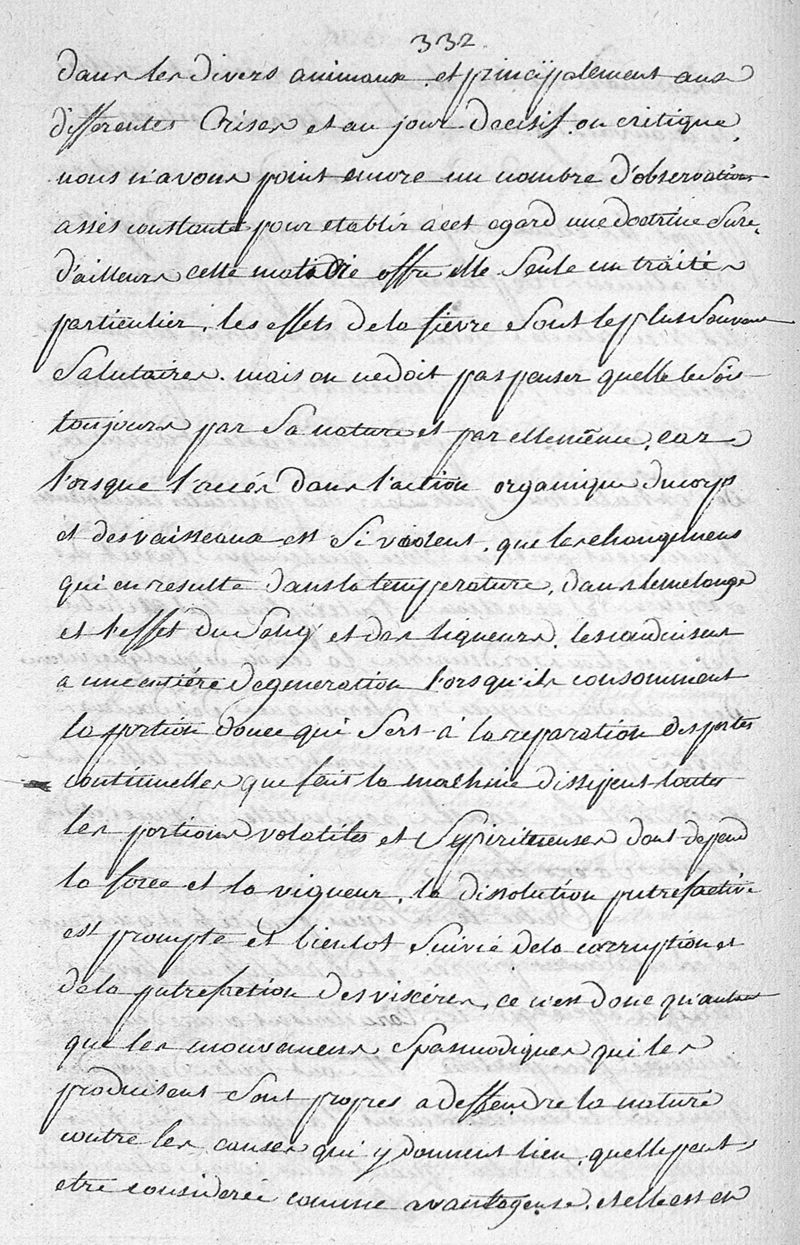 332
dans les divers animaux. et principalement aux
differentes Crises et au jour decisif. ou critique,
nous n'avons point encore un nombre d'observations
assés constante pour etablir a cet egard une doctrine Sure,
d'ailleurs cette maladie offre elle Seule un traités
particulier. les effets de la fievre Sont le plus Souvent
Salutaires. mais on ne doit pas penser quelle le Soit
toujours par Sa nature et par elle même, car
lorsque l'accés dans l'action organique du corps
et des vaisseaux est Si violent, que les changemens
qui en resulte dans la temperature, dans le melange
et l'effet du Sang et des liqueurs, les conduisent
a une entiere degeneration lorsqu'ils consomment
la portion douce qui Sert à la reparation des pertes
continuelles que fait la machine dissipent toutes
les portions volatiles et Spiritueuses dont depend
la force et la vigueur. la dissolution putrefactive
est prompte et bientot Suivie de la corruption et
de la putrefaction des viscères, ce n'est donc qu'autant
que les mouvemens Spasmodiques qui les
produisent Sont propres a deffendre la nature
contre les causes qui y donnent lieu, quelle peut
etre considerée comme avantageuse. et elle est en